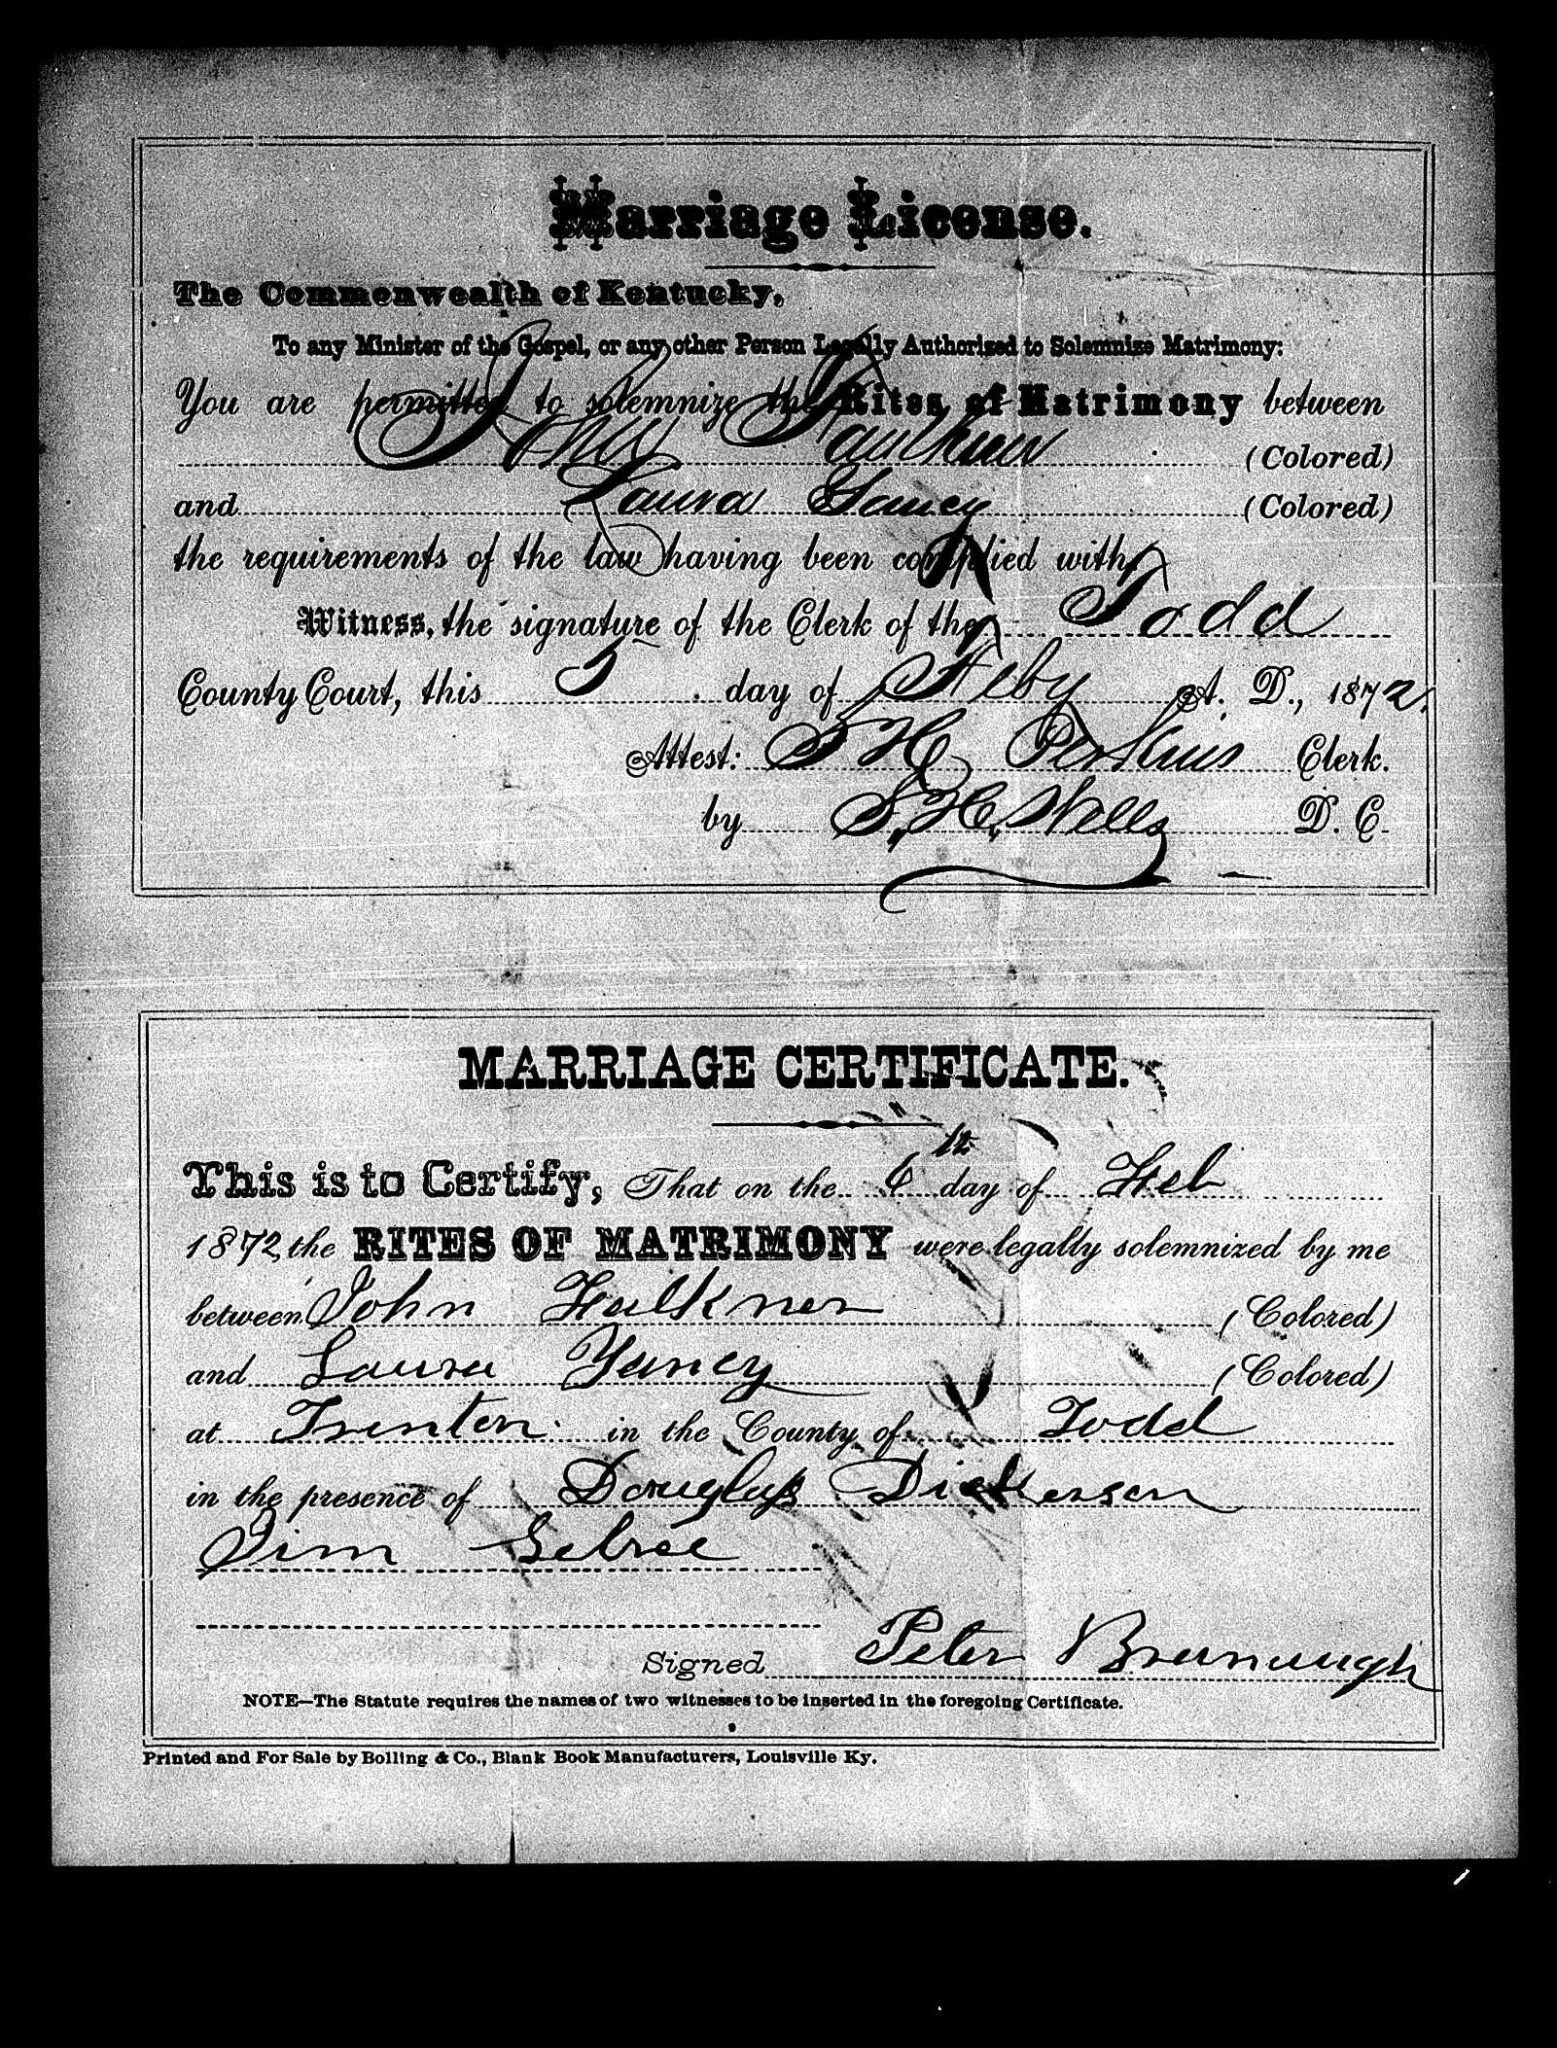 Marriage License.
The Commonwealth of Kentucky,
To any Minister of the Gospel, or any other Person Legally Authorized to Solemnize Matrimony:
You are permitted to solemnize the Rites of Matrimony between
John Faulkner (Colored)
and Laura Yancy (Colored)
the requirements of the law having been complied with,
Witness, the signature of the Clerk of the Todd
County Court, this 5 day of Feby A. D., 1872.
Attest: Perkins Clerk.
by S. H. Wells D. C.
MARRIAGE CERTIFICATE.
This is to Certify, That on the 6th day of Feb
1872, the RITES OF MATRIMONY were legally solemnized by me
between John Falkner (Colored)
and Laura Yancy (Colored)
at Trenton in the County of Todd
in the presence of Douglass Dickerson
Jim Sebree
Signed Peter
NOTE—The Statute requires the names of two witnesses to be inserted in the foregoing Certificate.
Printed and For Sale by Bolling & Co., Blank Book Manufacturers, Louisville Ky.